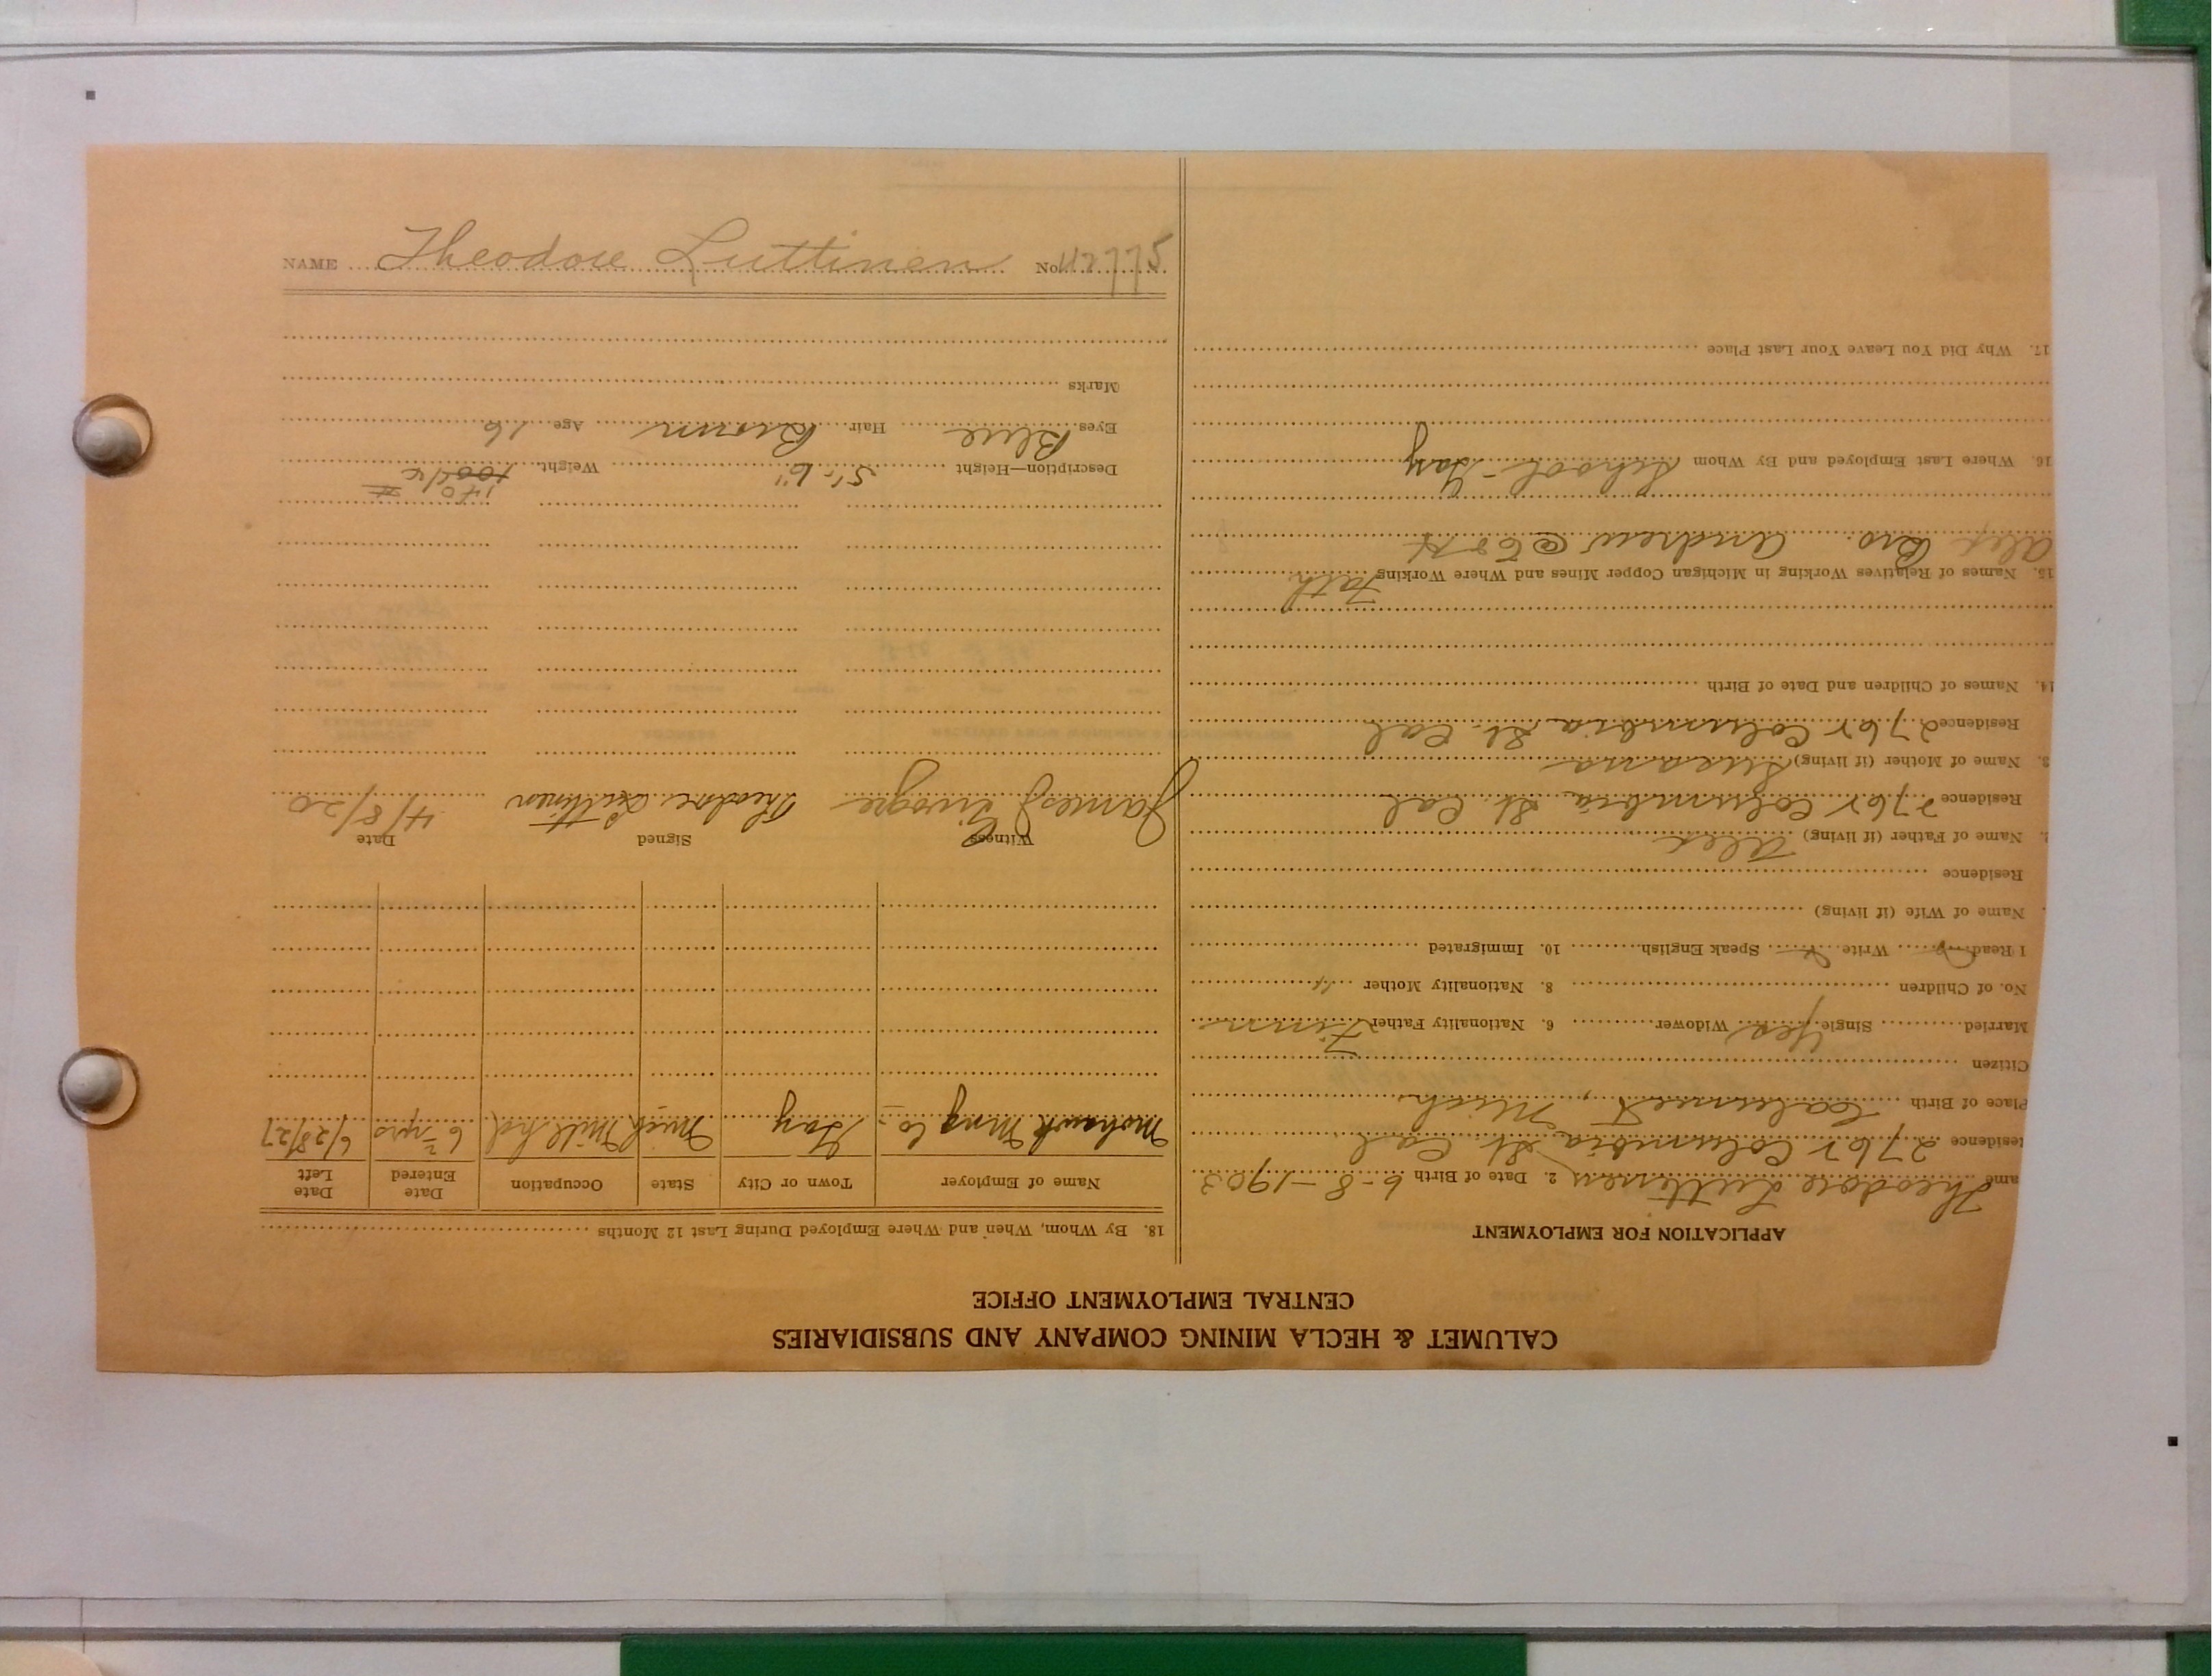 CALUMET & HECLA MINING COMPANY AND SUBSIDIARIES
CENTRAL EMPLOYMENT OFFICE
APPLICATION FOR EMPLOYMENT
ame Theodore Luttinen 2. Date of Birth 6-8-1903
Residence 2762 Columbia St. Cal
Place of Birth Calumet, Mich.
Citizen
Married Single Yes Widower 6. Nationality Father Finn
No. of Children 8. Nationality Mother "
Read Write Speak English 10. Immigrated
Name of Wife (if living)
Residence
Name of Father (if living) Alex
Residence 2762 Columbia St. Cal
3. Name of Mother (if living)
Residence 2762 Columbia St. Cal
14. Names of Children and Date of Birth
15. Names of Relatives Working in Michigan Copper Mines and Where Working Fath.
Alex Bro. Andrew @
16. Where Last Employed and By Whom School - Gay
17. Why Did You Leave Your Last Place
18. By Whom, When and Where Employed During Last 12 Months
Name of Employer Town or City State Occupation Date Entered Date Left
Mohawk Mng Co. Gay Mich Mill 6 yrs 6/28/27
Witness Signed Date
James Theodore Luttinen 4/8/20
140 #
Description—Height 5'-6" Weight
Eyes Blue Hair Brown Age 16
Marks
NAME Theodore Luttinen No. 112775